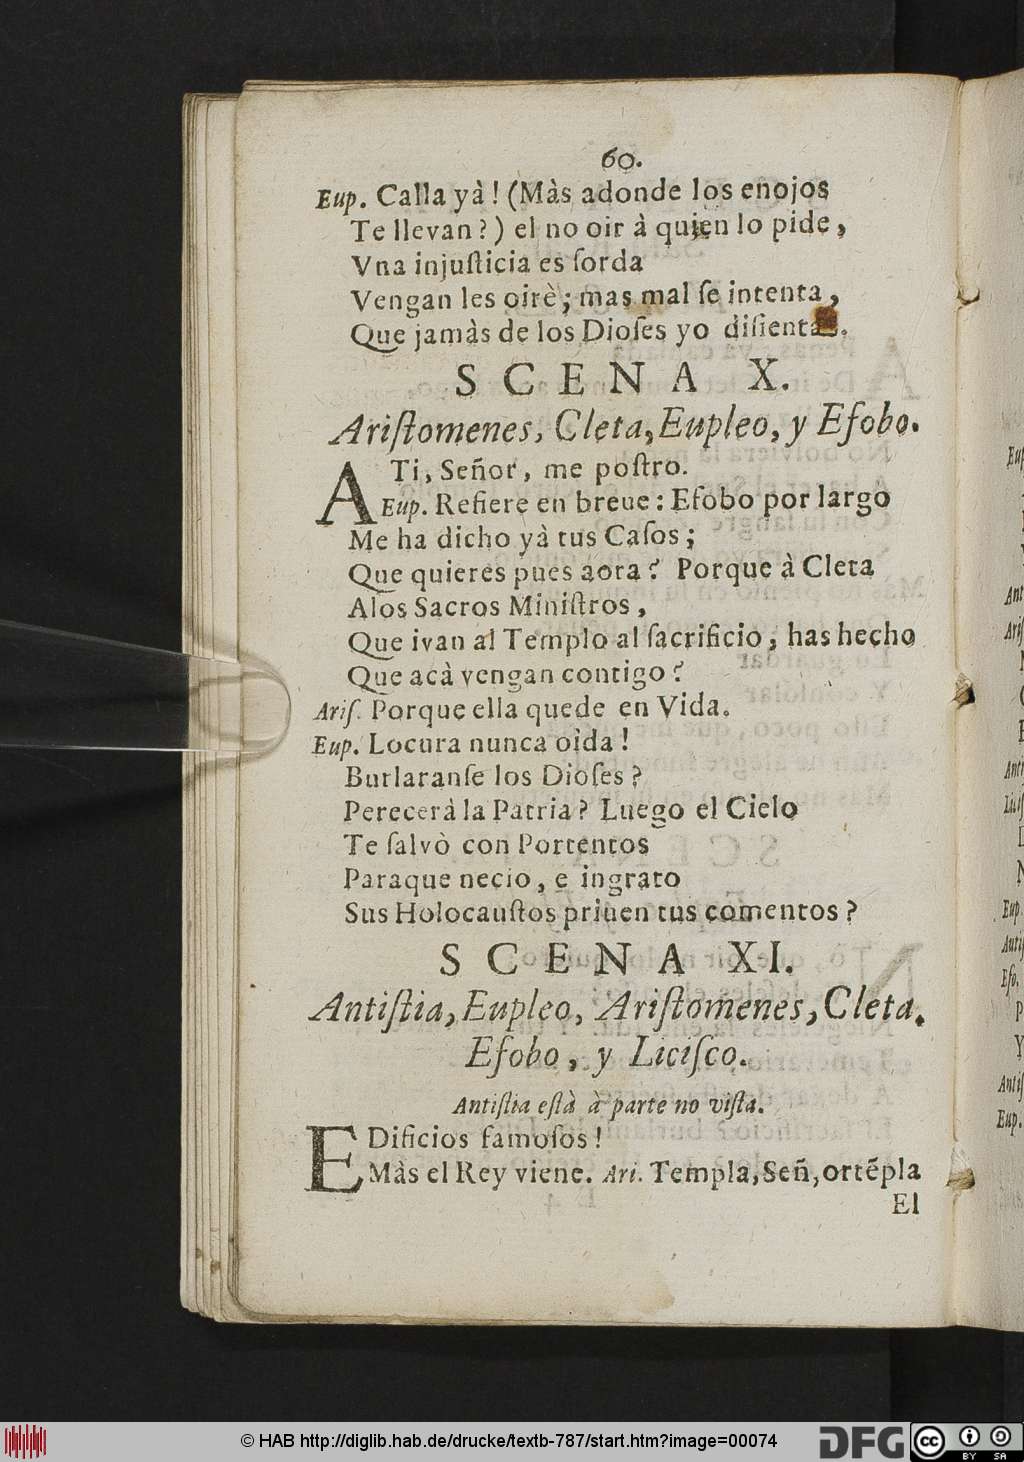 60.
Eup. Calla yà! (Màs adonde los enojos
Te llevan?) el no oir à quien lo pide,
Vna injuſticia es ſorda
Vengan les oirè; mas mal ſe intenta,
Que jamàs de los Dioſes yo diſienta.
SCENA X.
Ariſtomenes, Cleta, Eupleo, y Efobo.
A Ti, Señor, me poſtro.
Eup. Refiere en breue: Efobo por largo
Me ha dicho yà tus Caſos;
Que quieres pues aora? Porque à Cleta
Alos Sacros Miniſtros,
Que ivan al Templo al ſacrificio, has hecho
Que acà vengan contigo?
Ariſ. Porque ella quede en Vida.
Eup. Locura nunca oìda!
Burlaranſe los Dioſes?
Perecerà la Patria? Luego el Cielo
Te ſalvò con Portentos
Paraque necio, e ingrato
Sus Holocauſtos priuen tus comentos?
SCENA XI.
Antiſtia, Eupleo, Ariſtomenes, Cleta.
Efobo, y Liciſco.
Antiſtia eſtà à parte no viſta.
EDificios famoſos!
Màs el Rey viene. Ari. Templa, Señ,ortẽpla
El
© HAB http://diglib.hab.de/drucke/textb-787/start.htm?image=00074
DFG
cc
BY SA